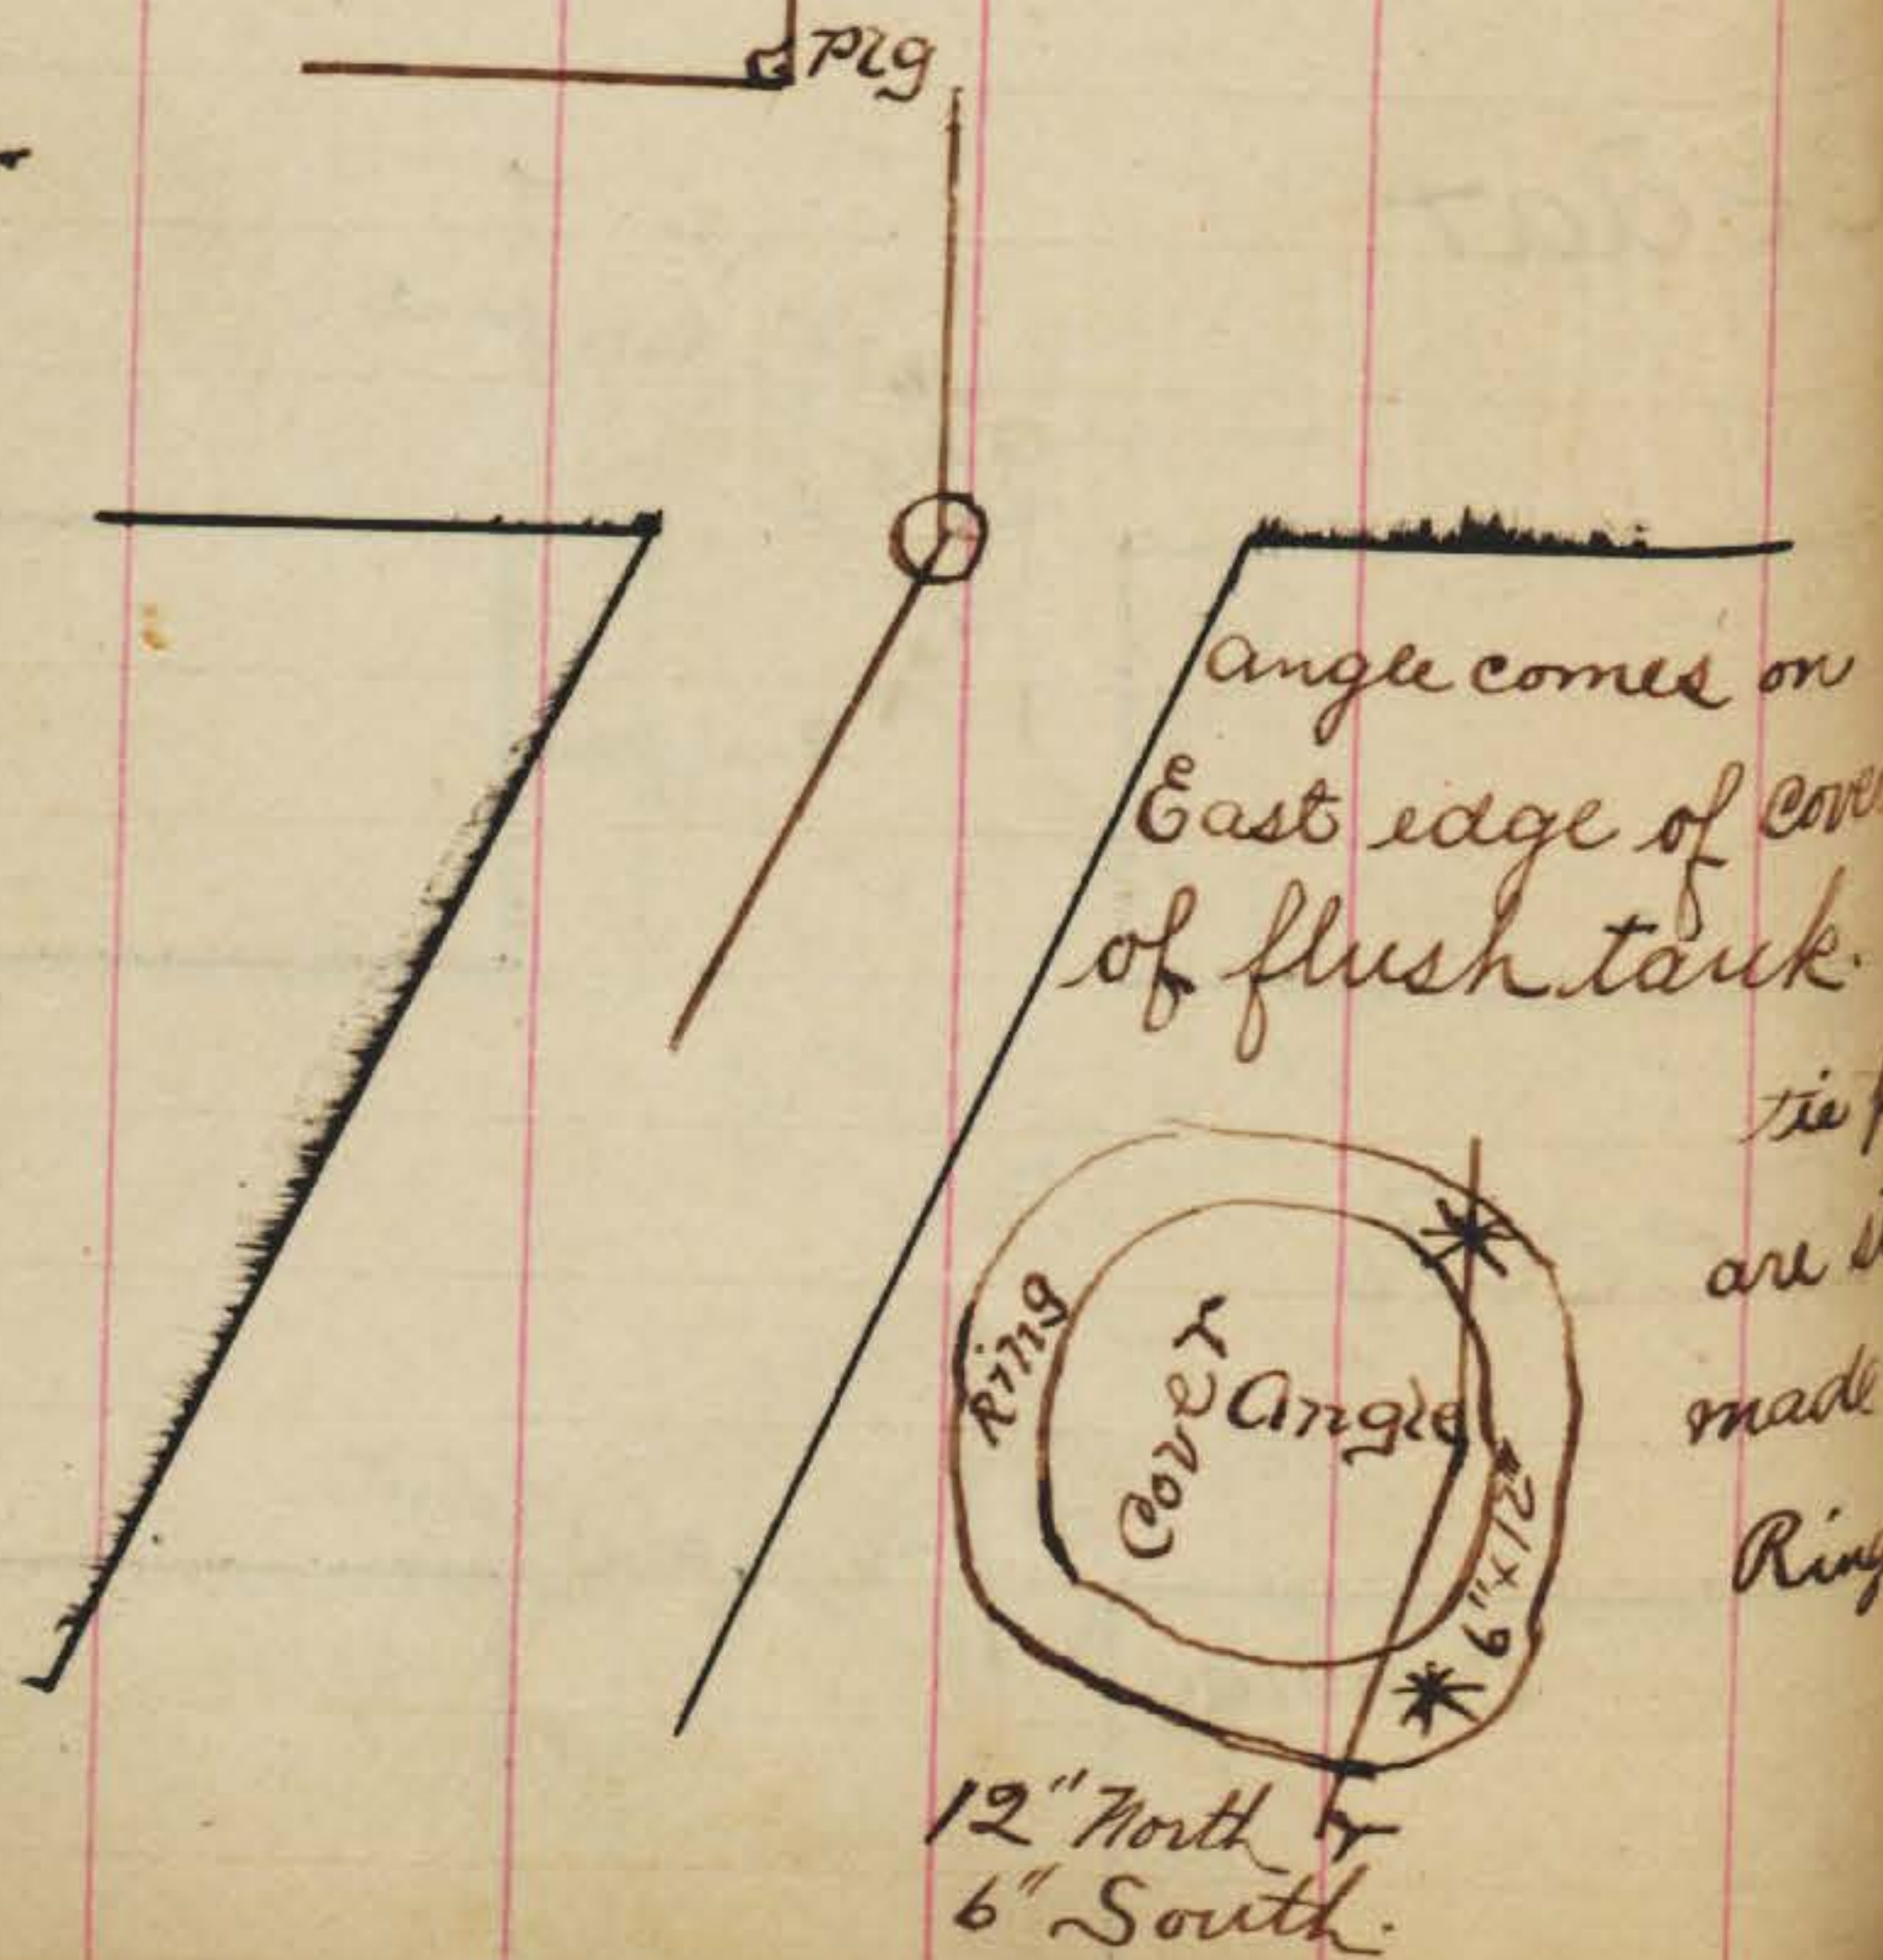 Plg
angle comes on
East edge of cove
of flush tank.
tie
are
made
Ring
Ring
Cover
Angle
6" x 12"
12" North &
6" South.